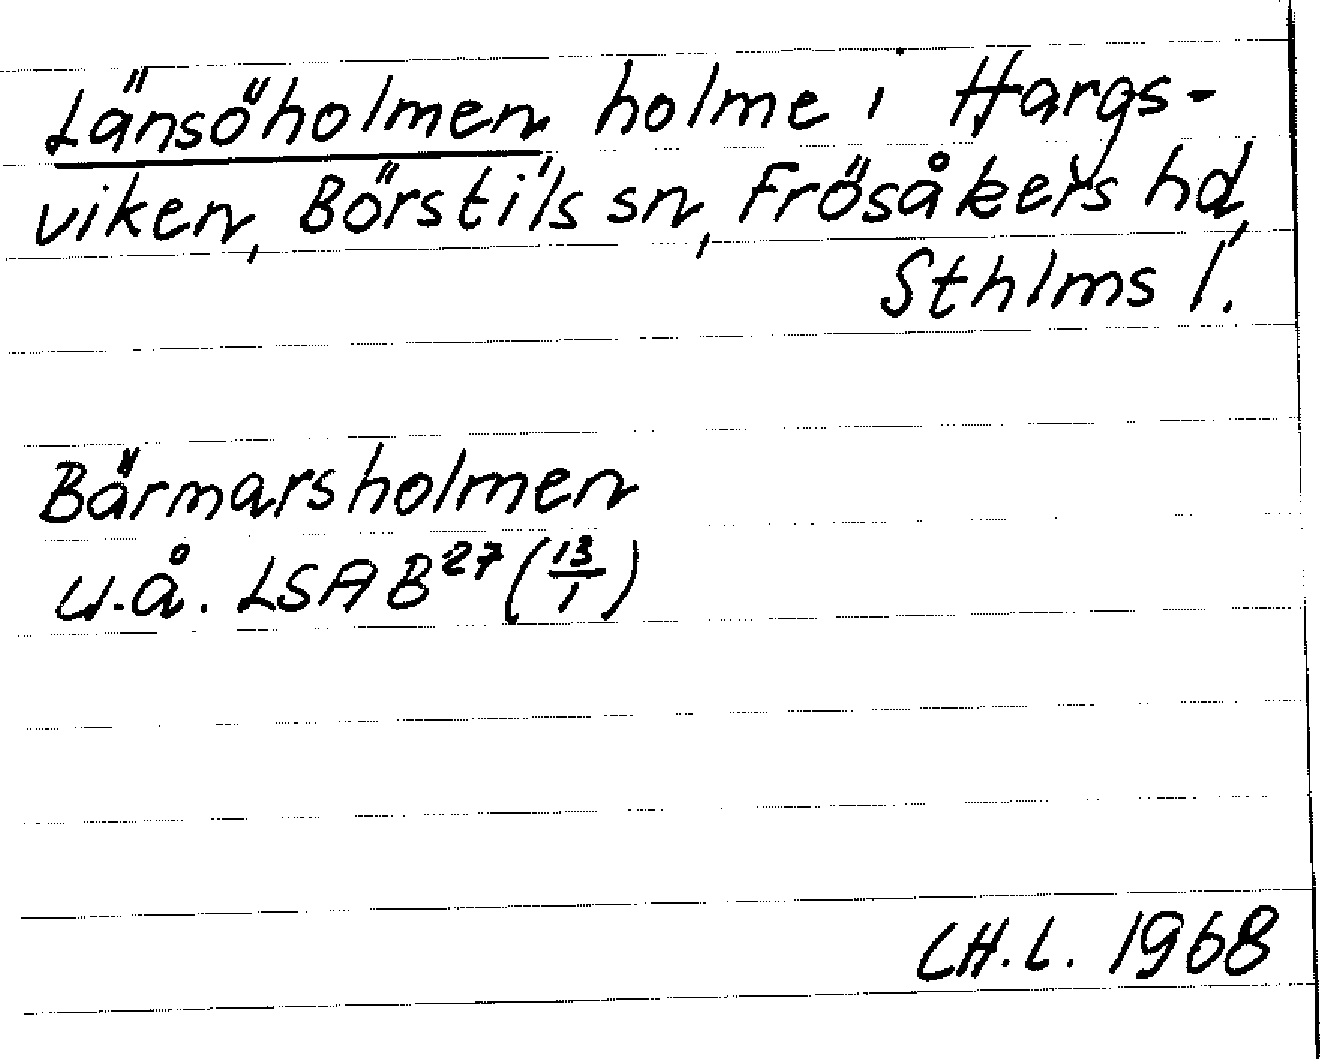 Länsöholmen holme i Hargs-
viken, Börstils sn, Frösåkers hd,
Sthlms l.
Bärmarsholmen
u.å. LSA B²⁷ (13/1)
CH.L. 1968